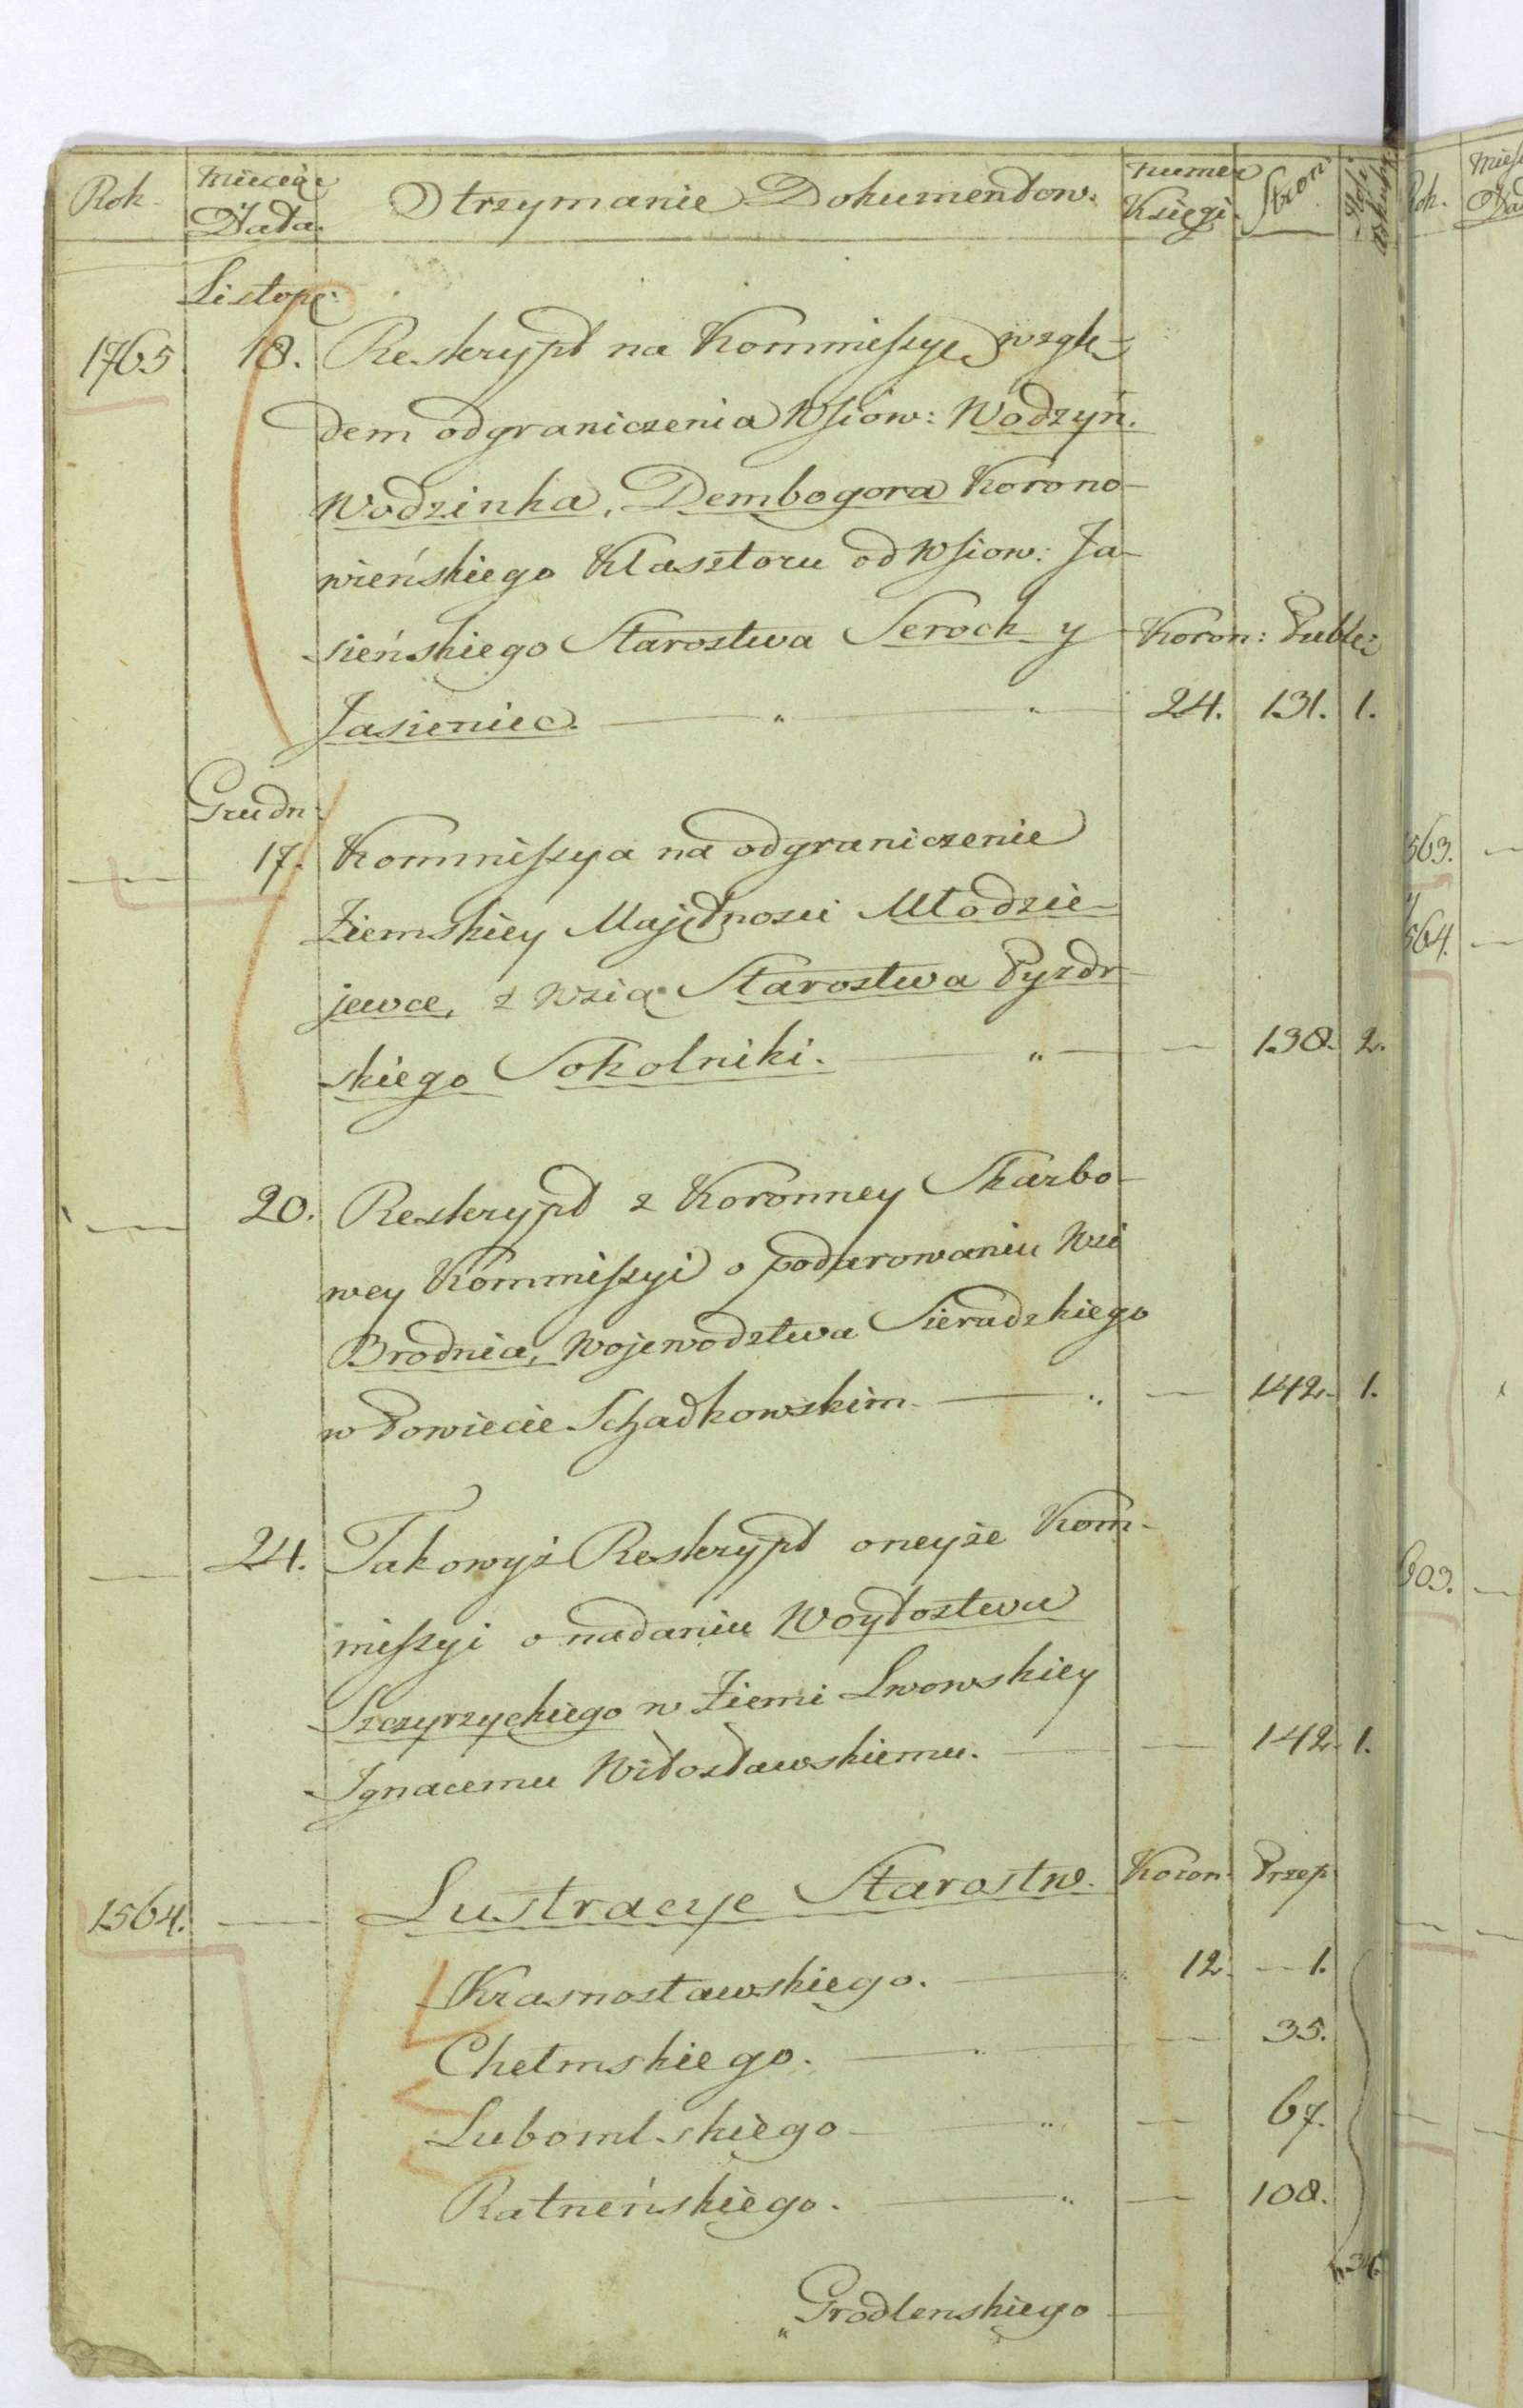 Rok. Miesiąc Data. Otrzymanie Dokumentow. Numer Księgi. Stron:
Listop:
1765 18. Reskrypt na Kommissyę wzglę-
dem odgraniczenia Wsiow: Wodzyń.
Wodzinka, Dembogora Korono-
wieńskiego Klasztoru od Wsiow: Ja-
sieńskiego Starostwa Serock y Koron: Publ:
Jasieniec. — 24. 131. 1.
Grudn:
— 17. Kommissya na odgraniczenie
Ziemskiey Majętnosci Młodzie-
jewce, z Wsią Starostwa Pyzdr-
skiego Sokolniki. — — 138. 2.
— 20. Reskrypt z Koronney Skarbo-
wey Kommissyi o podarowaniu Wsi
Brodnia, Wojewodztwa Sieradzkiego
w Powiecie Schadkowskim. — — 142. 1.
— 24. Takowyż Reskrypt oneyże Kom-
missyi o nadaniu Woytostwa
Szczyrzyckiego w Ziemi Lwowskiey
Ignacemu Witosławskiemu. — — 142. 1.
1564. — Lustracye Starostw. Koron: Przep:
Krasnostawskiego. — 12. — 1.
Chełmskiego. — — 35.
Lubomlskiego — — 67.
Ratneńskiego. — — 108.
Grodlenskiego
Rok.
563.
y
564.
603.